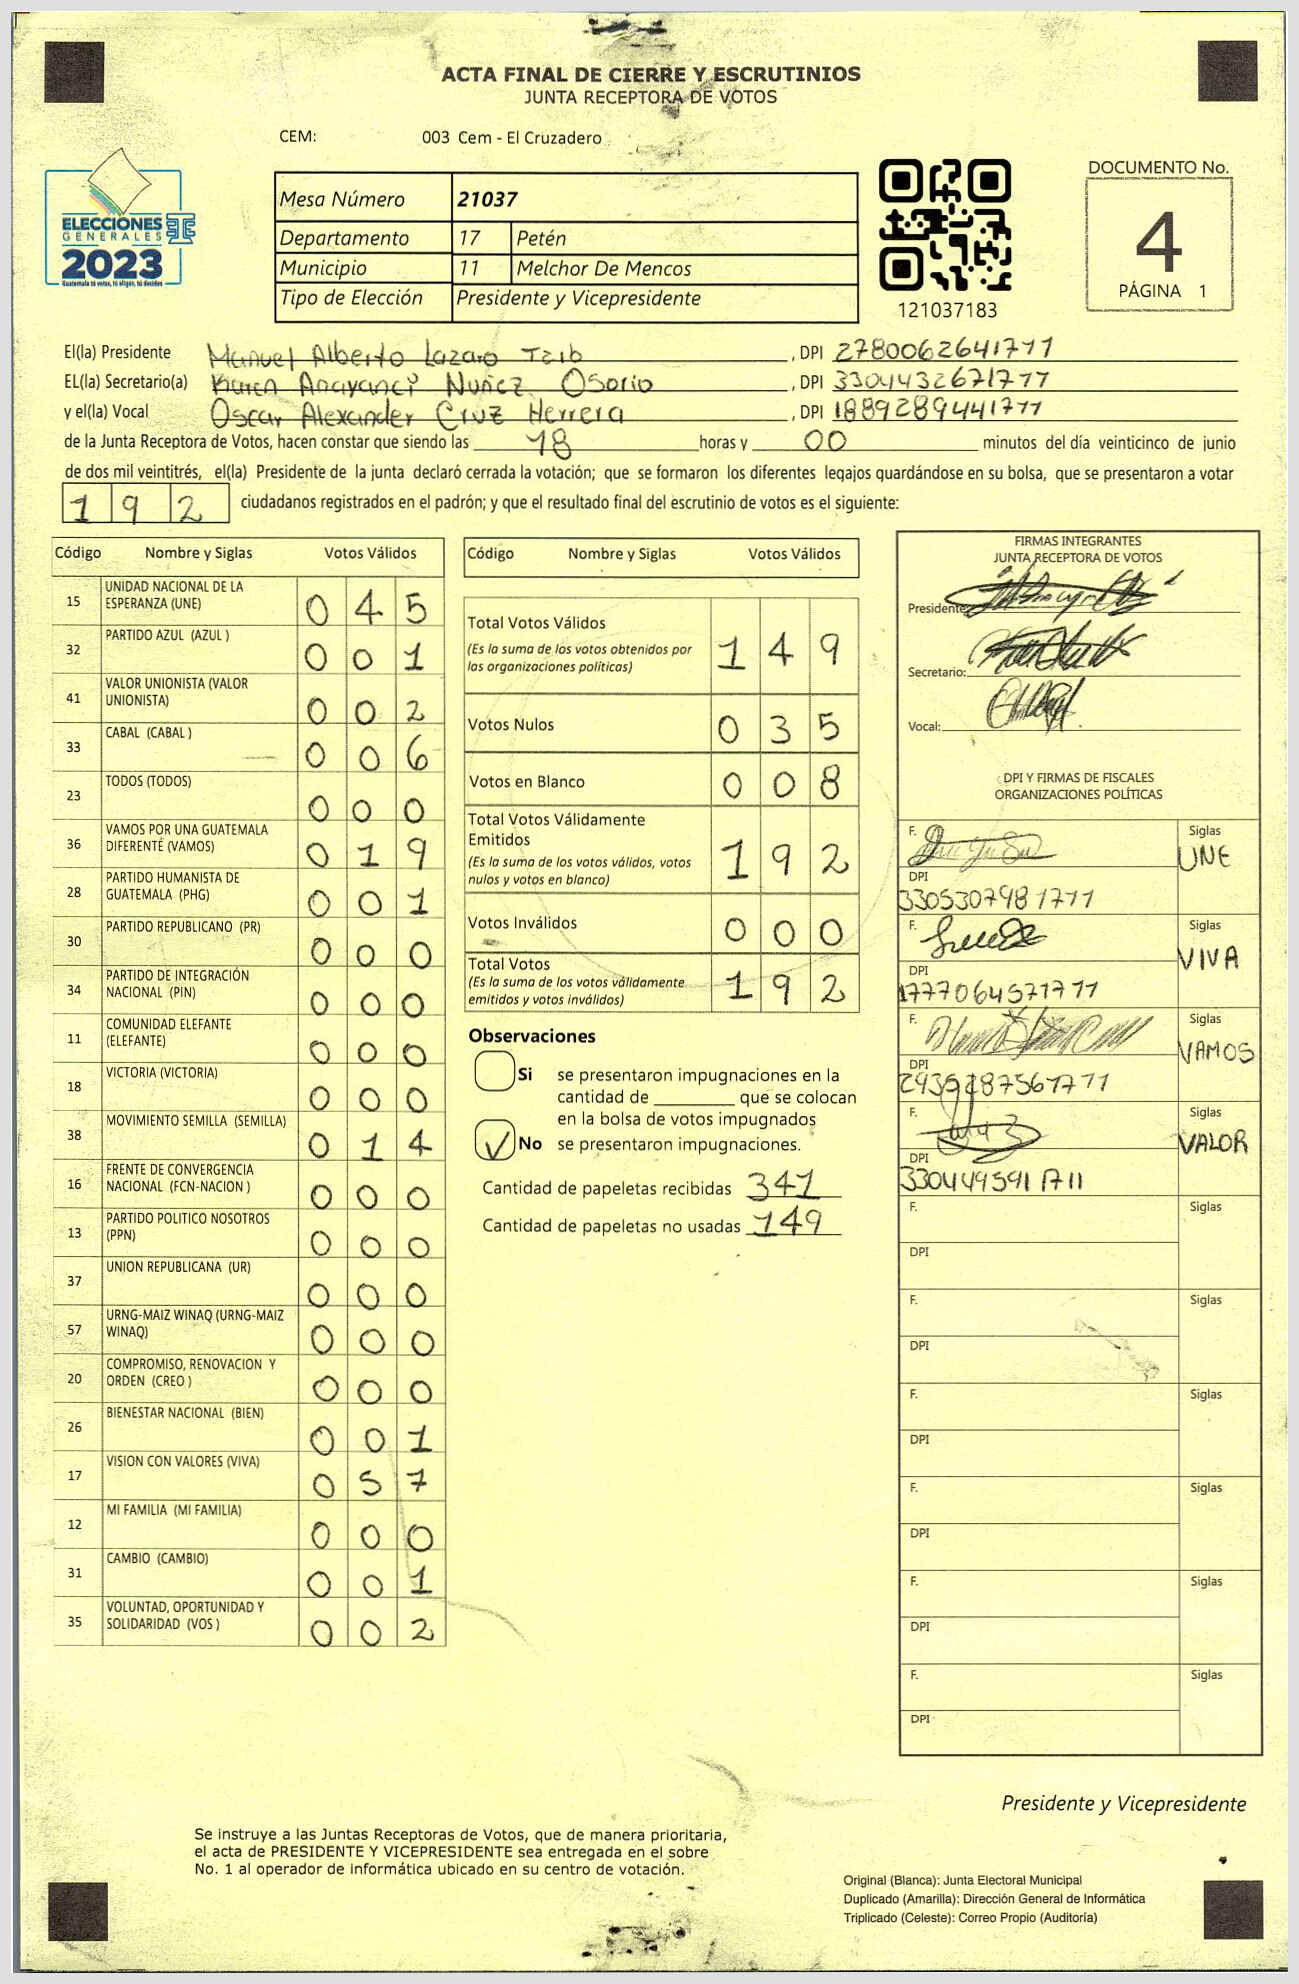 ACTA FINAL DE CIERRE Y ESCRUTINIOS
JUNTA RECEPTORA DE VOTOS
CEM: 003 Cem - El Cruzadero
ELECCIONES
GENERALES
2023
Guatemala tú votas, tú eliges, tú decides
Mesa Número 21037
Departamento 17 Petén
Municipio 11 Melchor De Mencos
Tipo de Elección Presidente y Vicepresidente
121037183
DOCUMENTO No.
4
PÁGINA 1
El(la) Presidente Manuel Alberto Lazaro Tzib, DPI 2780062641711
EL(la) Secretario(a) Karen Anayanci Nuñez Osorio, DPI 3304432671711
y el(la) Vocal Oscar Alexander Cruz Herrera, DPI 1889289441711
de la Junta Receptora de Votos, hacen constar que siendo las 18 horas y 00 minutos del día veinticinco de junio
de dos mil veintitrés, el(la) Presidente de la junta declaró cerrada la votación; que se formaron los diferentes legajos quardándose en su bolsa, que se presentaron a votar
192 ciudadanos registrados en el padrón; y que el resultado final del escrutinio de votos es el siguiente:
Código Nombre y Siglas Votos Válidos
15 UNIDAD NACIONAL DE LA ESPERANZA (UNE) 0 4 5
32 PARTIDO AZUL (AZUL ) 0 0 1
41 VALOR UNIONISTA (VALOR UNIONISTA) 0 0 2
33 CABAL (CABAL ) 0 0 6
23 TODOS (TODOS) 0 0 0
36 VAMOS POR UNA GUATEMALA DIFERENTE (VAMOS) 0 1 9
28 PARTIDO HUMANISTA DE GUATEMALA (PHG) 0 0 1
30 PARTIDO REPUBLICANO (PR) 0 0 0
34 PARTIDO DE INTEGRACIÓN NACIONAL (PIN) 0 0 0
11 COMUNIDAD ELEFANTE (ELEFANTE) 0 0 0
18 VICTORIA (VICTORIA) 0 0 0
38 MOVIMIENTO SEMILLA (SEMILLA) 0 1 4
16 FRENTE DE CONVERGENCIA NACIONAL (FCN-NACION ) 0 0 0
13 PARTIDO POLITICO NOSOTROS (PPN) 0 0 0
37 UNION REPUBLICANA (UR) 0 0 0
57 URNG-MAIZ WINAQ (URNG-MAIZ WINAQ) 0 0 0
20 COMPROMISO, RENOVACION Y ORDEN (CREO ) 0 0 0
26 BIENESTAR NACIONAL (BIEN) 0 0 1
17 VISION CON VALORES (VIVA) 0 5 7
12 MI FAMILIA (MI FAMILIA) 0 0 0
31 CAMBIO (CAMBIO) 0 0 1
35 VOLUNTAD, OPORTUNIDAD Y SOLIDARIDAD (VOS ) 0 0 2
Código Nombre y Siglas Votos Válidos
Total Votos Válidos 1 4 9
(Es la suma de los votos obtenidos por
las organizaciones políticas)
Votos Nulos 0 3 5
Votos en Blanco 0 0 8
Total Votos Válidamente
Emitidos 1 9 2
(Es la suma de los votos válidos, votos
nulos y votos en blanco)
Votos Inválidos 0 0 0
Total Votos 1 9 2
(Es la suma de los votos válidamente
emitidos y votos inválidos)
Observaciones
Si se presentaron impugnaciones en la
cantidad de ________ que se colocan
en la bolsa de votos impugnados
No se presentaron impugnaciones.
Cantidad de papeletas recibidas 341
Cantidad de papeletas no usadas 149
FIRMAS INTEGRANTES
JUNTA RECEPTORA DE VOTOS
Presidente:
Secretario:
Vocal:
DPI Y FIRMAS DE FISCALES
ORGANIZACIONES POLÍTICAS
F. Siglas UNE
DPI
3305307981711
F. Siglas VIVA
DPI
1777064571711
F. Siglas VAMOS
DPI
2435287561711
F. Siglas VALOR
DPI
3304495911711
F. Siglas
DPI
F. Siglas
DPI
F. Siglas
DPI
F. Siglas
DPI
F. Siglas
DPI
F. Siglas
DPI
Presidente y Vicepresidente
Se instruye a las Juntas Receptoras de Votos, que de manera prioritaria,
el acta de PRESIDENTE Y VICEPRESIDENTE sea entregada en el sobre
No. 1 al operador de informática ubicado en su centro de votación.
Original (Blanca): Junta Electoral Municipal
Duplicado (Amarilla): Dirección General de Informática
Triplicado (Celeste): Correo Propio (Auditoría)